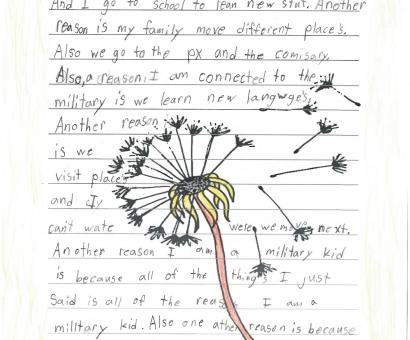 And I go to school to lean new stut. Another
reason is my family move different place's.
Also we go to the px and the comisary.
Also, a reason, I am connected to the
military is we learn new langwges.
Another reason
is we
visit place's
and
can't wate were we move next.
Another reason I am a military kid
is because all of the things I just
Said is all of the reason I am a
military kid. Also one ather reason is because